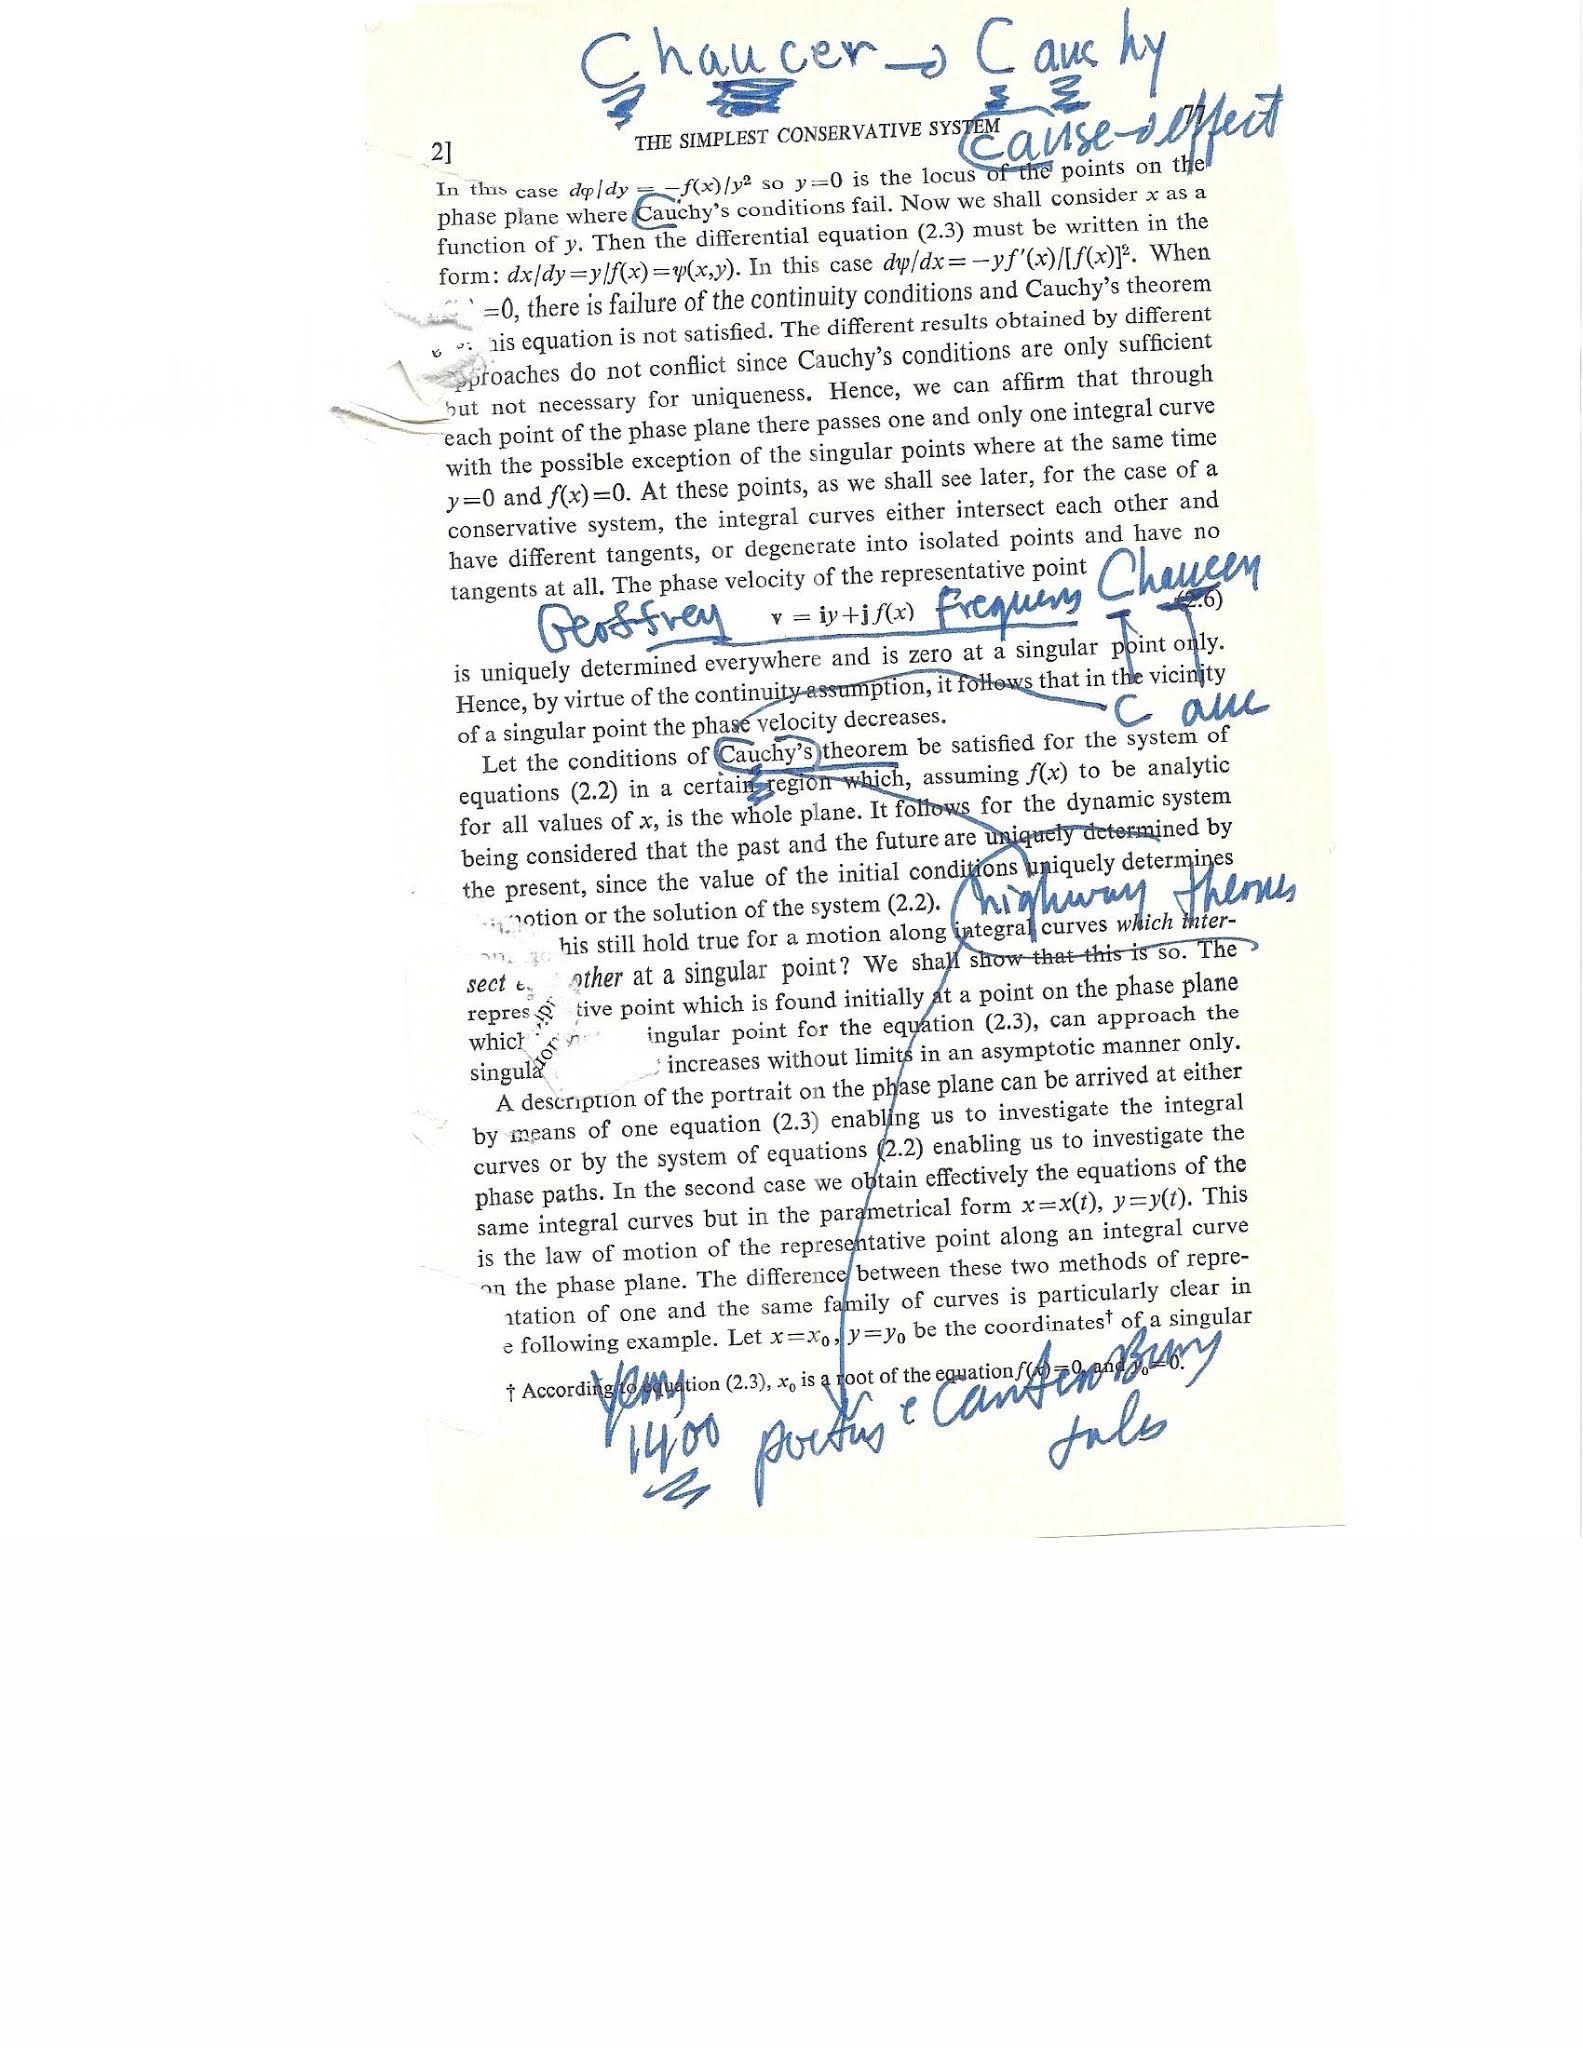 Chaucer → Cauchy
77
cause → effect
2] THE SIMPLEST CONSERVATIVE SYSTEM
In this case dφ/dy = −f(x)/y² so y=0 is the locus of the points on the
phase plane where Cauchy's conditions fail. Now we shall consider x as a
function of y. Then the differential equation (2.3) must be written in the
form: dx/dy=y/f(x)=ψ(x,y). In this case dψ/dx=−yf′(x)/[f(x)]². When
=0, there is failure of the continuity conditions and Cauchy's theorem
his equation is not satisfied. The different results obtained by different
pproaches do not conflict since Cauchy's conditions are only sufficient
but not necessary for uniqueness. Hence, we can affirm that through
each point of the phase plane there passes one and only one integral curve
with the possible exception of the singular points where at the same time
y=0 and f(x)=0. At these points, as we shall see later, for the case of a
conservative system, the integral curves either intersect each other and
have different tangents, or degenerate into isolated points and have no
tangents at all. The phase velocity of the representative point
Chaucer
Geoffrey v = iy+j f(x) (2.6)
is uniquely determined everywhere and is zero at a singular point only.
Hence, by virtue of the continuity assumption, it follows that in the vicinity
of a singular point the phase velocity decreases.
C auc
Let the conditions of Cauchy's theorem be satisfied for the system of
equations (2.2) in a certain region which, assuming f(x) to be analytic
for all values of x, is the whole plane. It follows for the dynamic system
being considered that the past and the future are uniquely determined by
the present, since the value of the initial conditions uniquely determines
motion or the solution of the system (2.2).
highway
his still hold true for a motion along integral curves which inter-
sect e other at a singular point? We shall show that this is so. The
repres tive point which is found initially at a point on the phase plane
which ingular point for the equation (2.3), can approach the
singula increases without limits in an asymptotic manner only.
A description of the portrait on the phase plane can be arrived at either
by means of one equation (2.3) enabling us to investigate the integral
curves or by the system of equations (2.2) enabling us to investigate the
phase paths. In the second case we obtain effectively the equations of the
same integral curves but in the parametrical form x=x(t), y=y(t). This
is the law of motion of the representative point along an integral curve
on the phase plane. The difference between these two methods of repre-
ntation of one and the same family of curves is particularly clear in
e following example. Let x=x₀, y=y₀ be the coordinates† of a singular
† According to equation (2.3), x₀ is a root of the equation f(x)=0, and y₀=0.
1400
Canterbury
tales